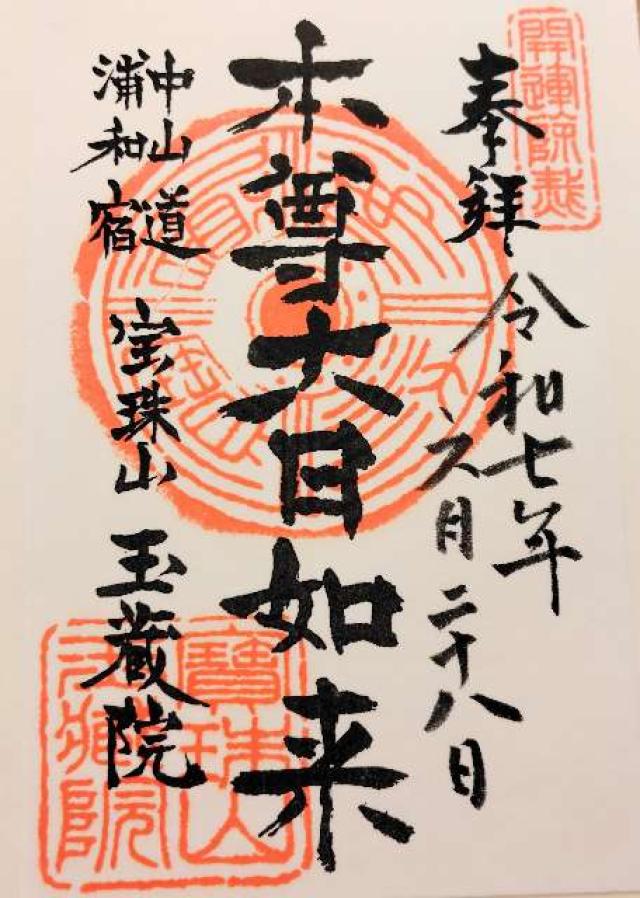 開運除災
奉拝
令和七年
六月二十八日
本尊大日如来
中山道
浦和宿
宝珠山 玉蔵院
寶珠山
玉蔵院